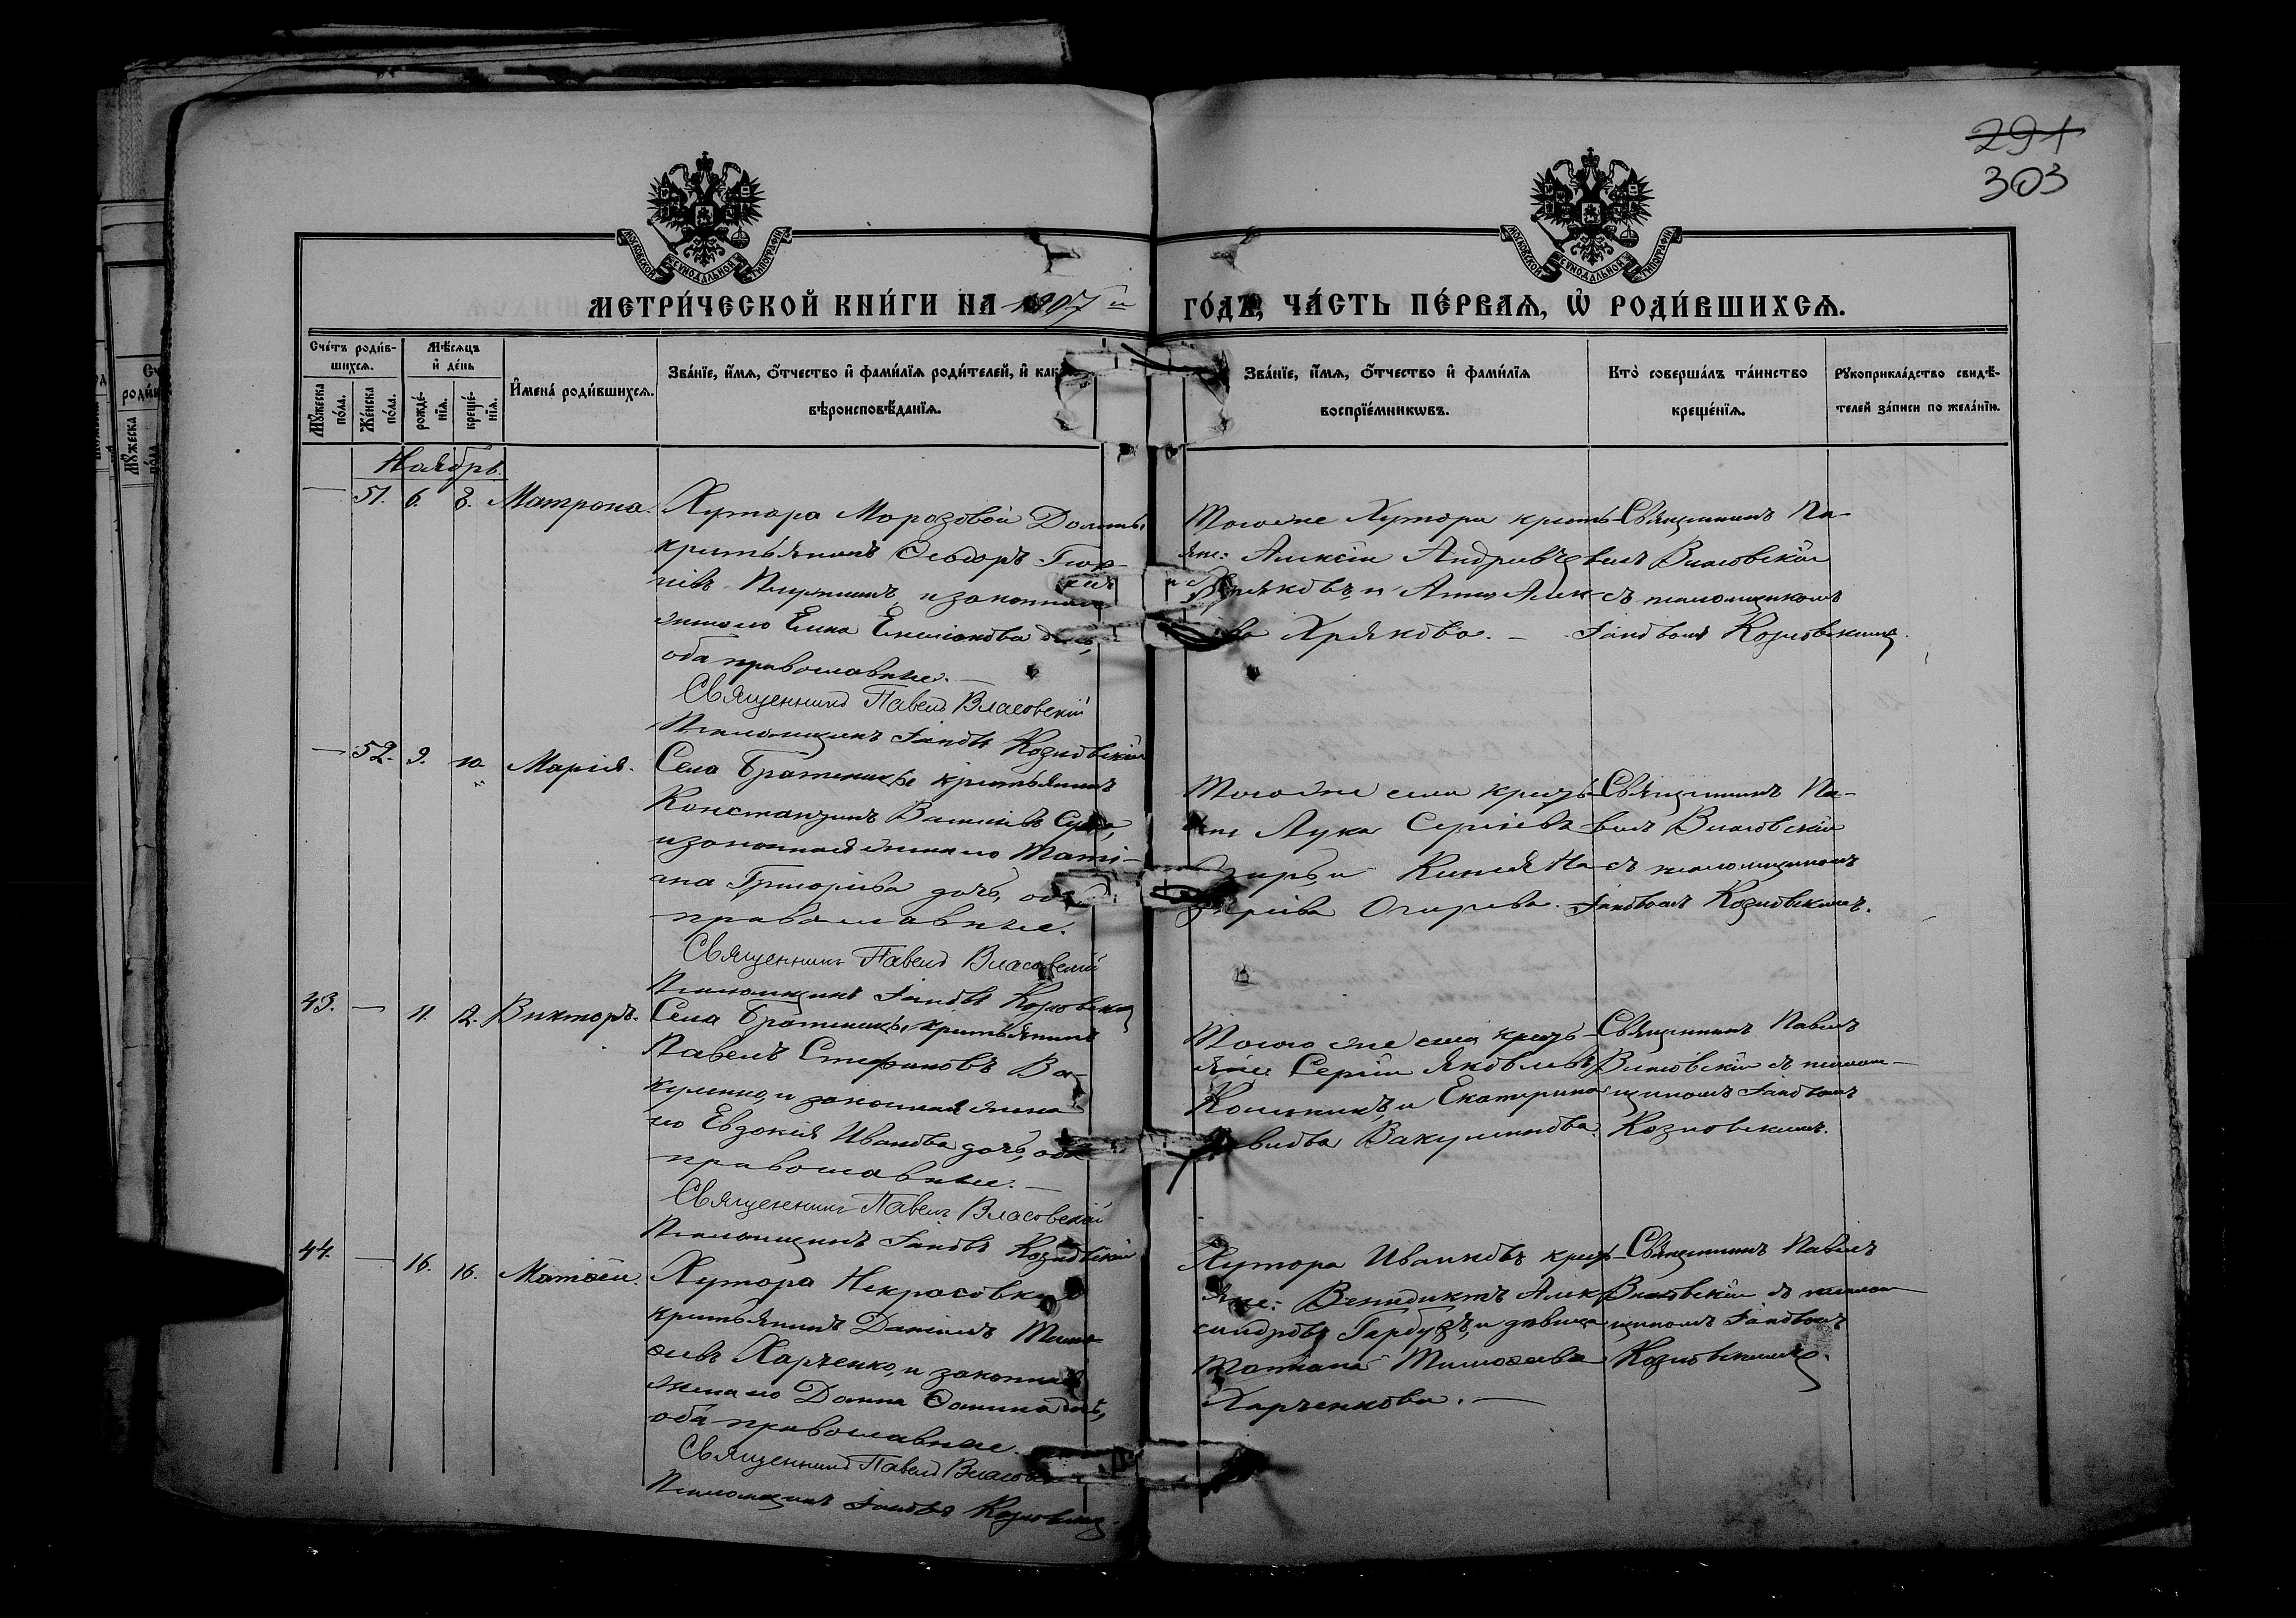 291
303
МОСКОВСКОЙ СѴНОДАЛЬНОЙ ТИПОГРАФІИ
МОСКОВСКОЙ СѴНОДАЛЬНОЙ ТИПОГРАФІИ
МЕТРИ́ЧЕСКОЙ КНИ́ГИ НА 1907 й ГО́ДЪ, ЧА́СТЬ ПЕ́РВАѦ, Ѡ҆ РОДИ́ВШИХСѦ.
Сче́тъ роди́в-
шихсѧ.
Мꙋ́жеска по́ла.
Же́нска по́ла.
Мѣ́сѧцъ
и҆ де́нь
рожде́-
нїѧ.
креще́-
нїѧ.
И҆мена̀ роди́вшихсѧ.
Зва́нїе, и҆́мѧ, ѻ҆́тчество и҆ фами́лїѧ роди́телей, и҆ как
вѣроисповѣ́данїѧ.
Зва́нїе, и҆́мѧ, ѻ҆́тчество и҆ фами́лїѧ
воспрїе́мникѡвъ.
Кто̀ соверша́лъ та́инство
креще́нїѧ.
Рꙋкоприкла́дство свидѣ́-
телей за́писи по жела́нїю.
Ноябрь.
— 51. 6. 8. Матрона.
Хутора Морозовой Долины,
крестьянинъ Ѳеодоръ Геор-
гіевъ и законная
жена его Елена Емиліанова дочь,
оба православные. —
Священникъ Павелъ Власовскій
Псаломщикъ Іаковъ Козловскій
Того же Хутора кресть-
яне: Алексій Андреевъ
и Анна Алек-
Хрякова. —
Священникъ Па-
велъ Власовскій
съ псаломщикомъ
Іаковомъ Козловскимъ.
— 52. 9. 10. Марія.
Села Братеницы крестьянинъ
Константинъ Васильевъ
и законная жена его Тать-
яна Григорьева дочь, оба
православные.
Священникъ Павелъ Власовскій
Псаломщикъ Іаковъ Козловскій
Того же села кресть-
яне Лука Сергіевъ
и Ксенія На-
Огирева.
Священникъ Па-
велъ Власовскій
съ псаломщикомъ
Іаковомъ Козловскимъ.
43. — 11. 12. Викторъ.
Села Братеницы, крестьянинъ
Павелъ Стефановъ Ва-
куленко, и законная жена
его Евдокія Иванова дочь, оба
православные. —
Священникъ Павелъ Власовскій
Псаломщикъ Іаковъ Козловскій
Того же села кресть-
яне: Сергій Яковлевъ
и Екатерина
Вакуленкова.
Священникъ Павелъ
Власовскій съ псалом-
щикомъ Іаковомъ
Козловскимъ.
44. — 16. 16. Матѳей.
Хутора Некрасовки
крестьянинъ Даніилъ Тимо-
ѳеевъ Харченко, и законная
жена его Домна Ѳомина дочь,
оба православные.
Священникъ Павелъ Власовскій
Псаломщикъ Іаковъ Козловскій
Хутора Иванковъ кресть-
яне: Венедиктъ Алек-
сандровъ Гарбузъ, и девица
Татіана Тимоѳеева
Харченкова. —
Священникъ Павелъ
Власовскій съ псалом-
щикомъ Іаковомъ
Козловскимъ.